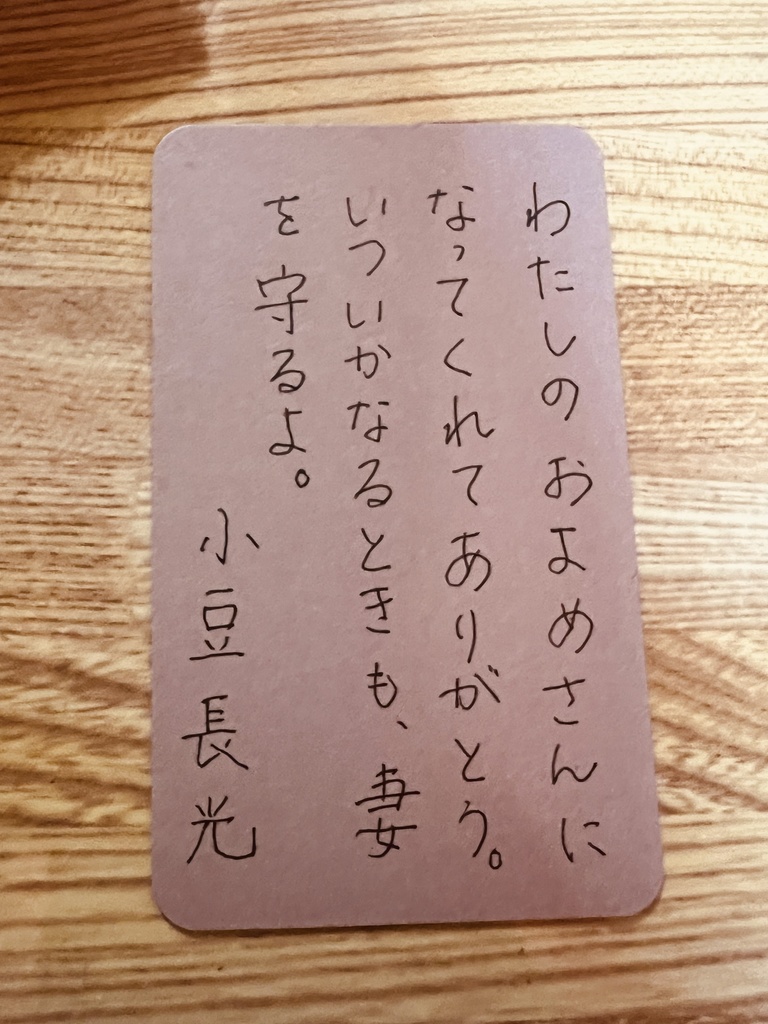 わたしのおよめさんに
なってくれてありがとう。
いついかなるときも、妻
を守るよ。
小豆長光